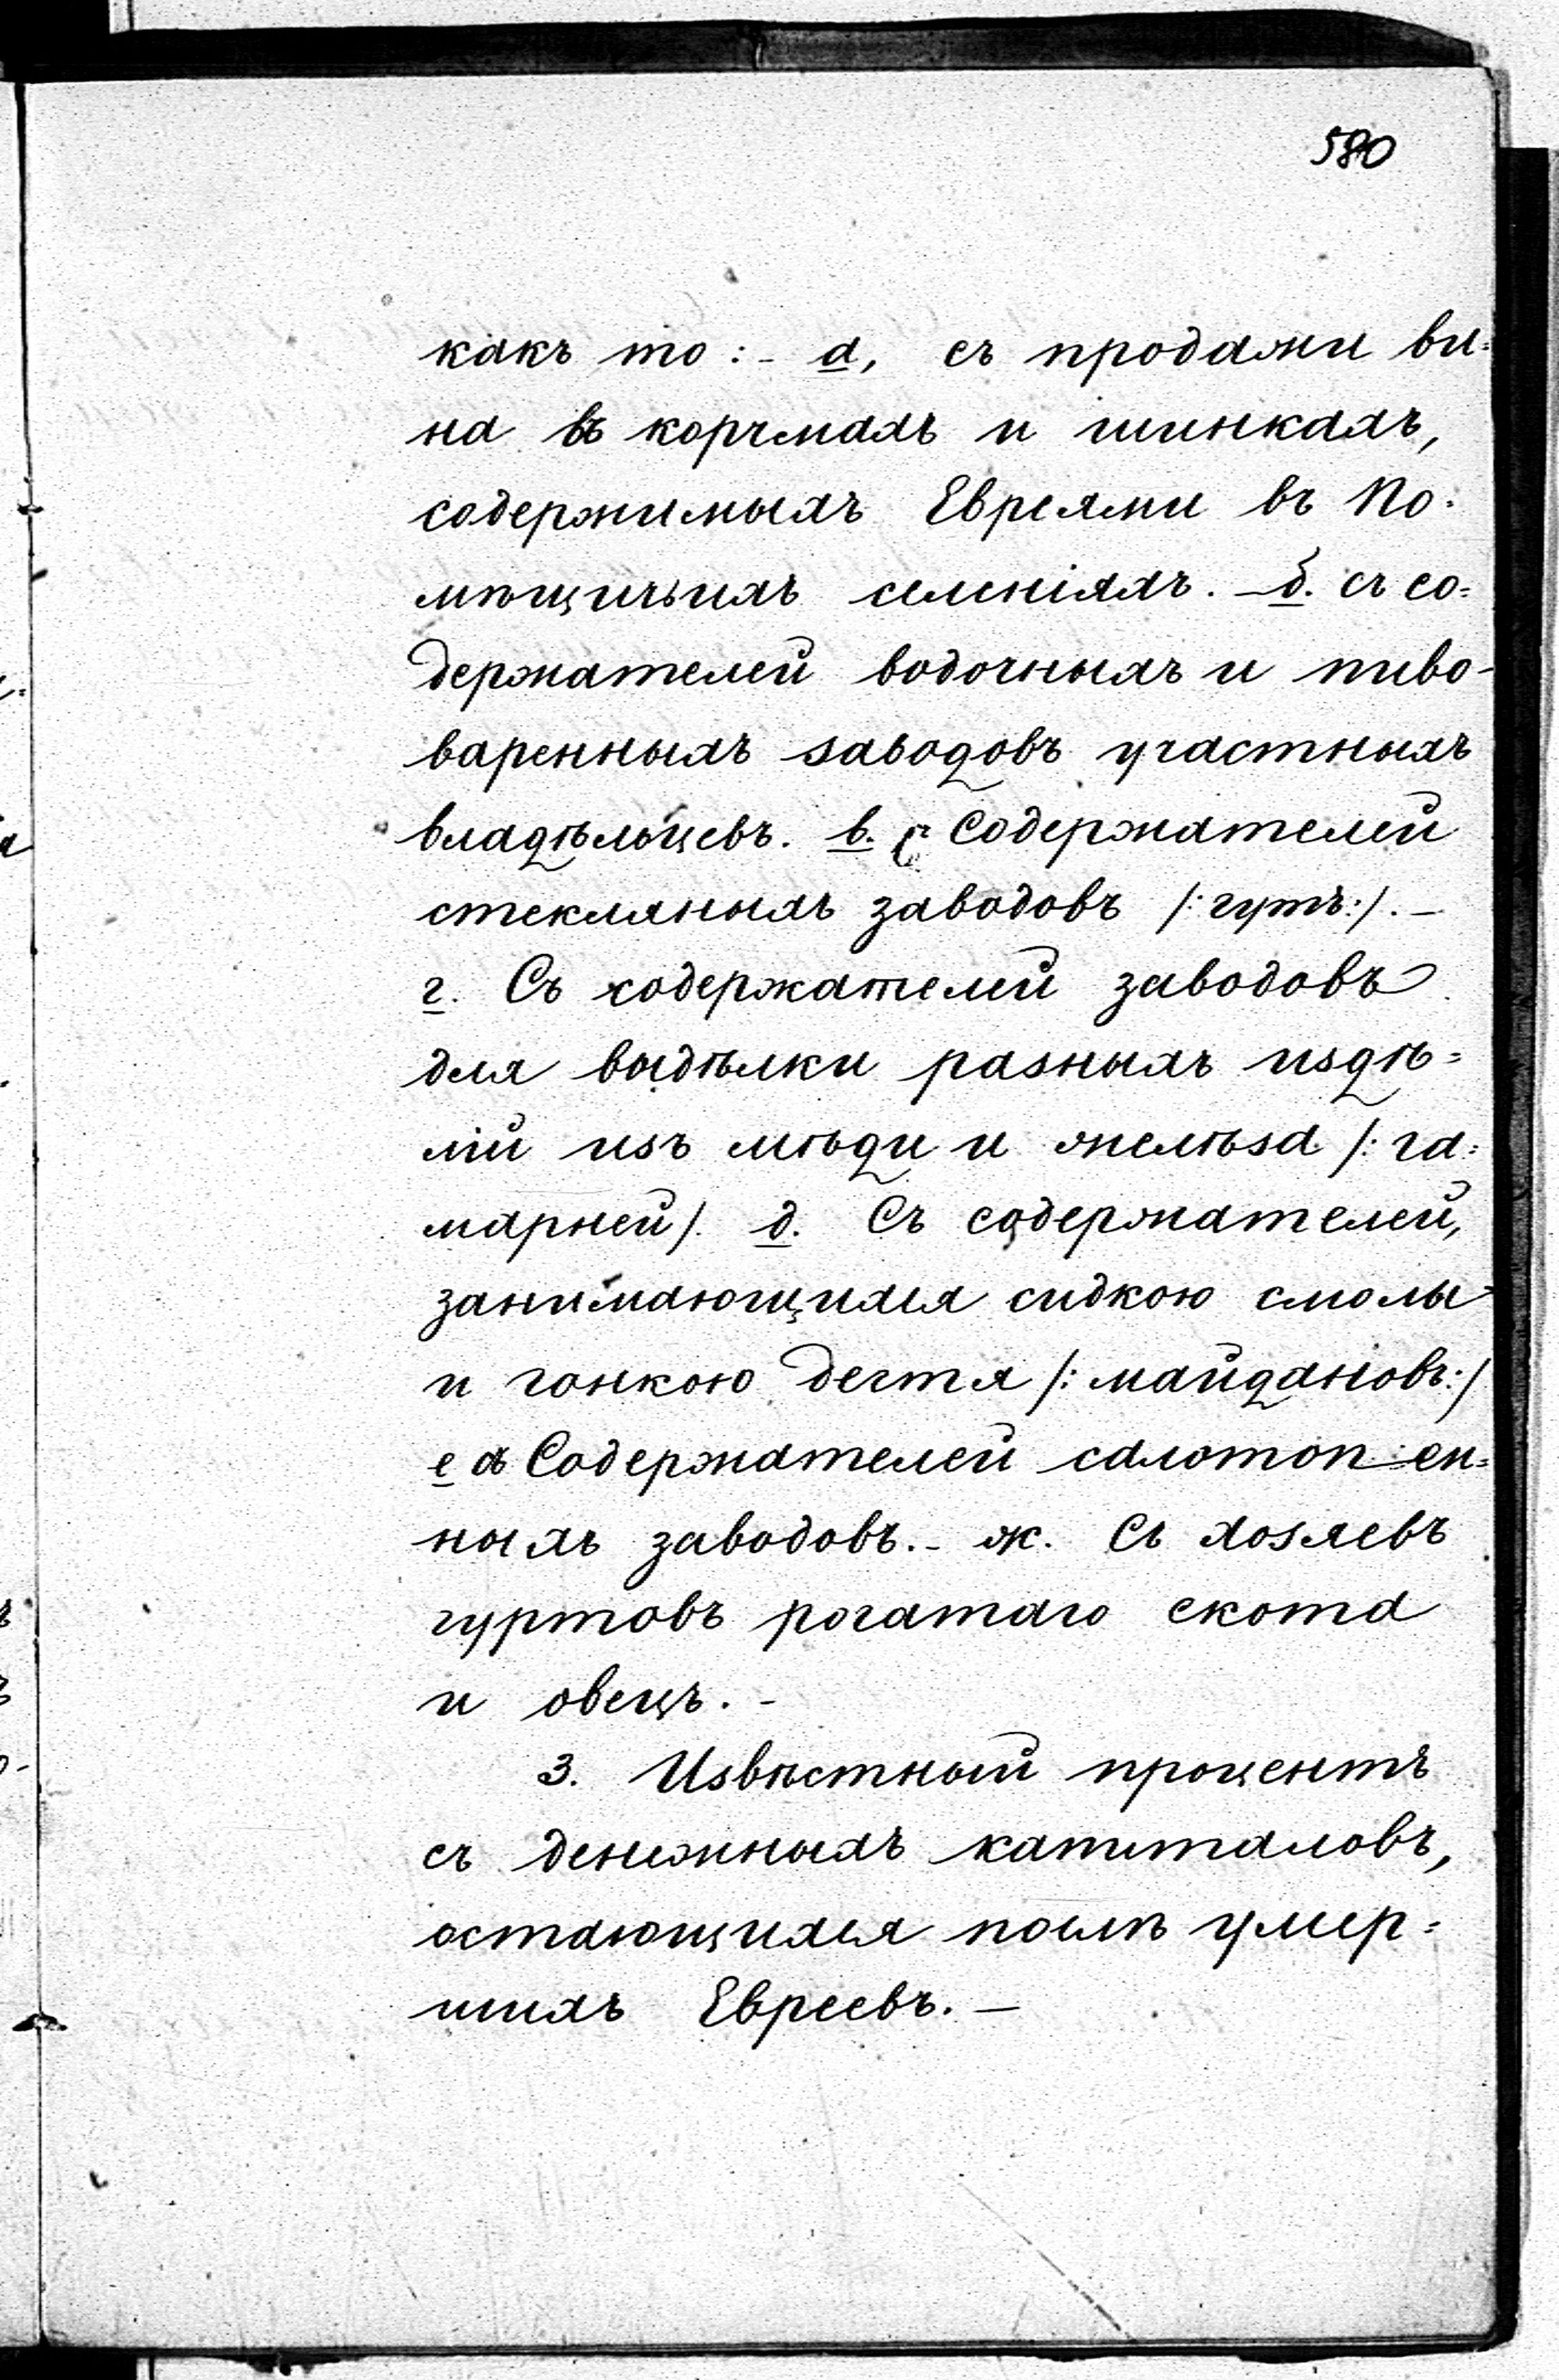 580
какъ то: - а, съ продажи ви=
на въ корчмахъ и шинкахъ,
содержимыхъ Евреями въ По=
мѣщичьихъ селеніяхъ. - б. съ со=
держателей водочныхъ и пиво-
варенныхъ заводовъ участныхъ
владѣльцевъ. в. Содержателей
стекляныхъ заводовъ /:гутъ:/. -
г. Съ содержателей заводовъ
для выдѣлки разныхъ издѣ=
лій изъ мѣди и желѣза /: га=
марней/. д. Съ содержателей,
занимающихся сидкою смолы
и гонкою дегтя /: майдановъ:/
е Содержателей салотоп-ен=
ныхъ заводовъ. - ж. Съ хозяевъ
гуртовъ рогатаго скота
и овецъ. -
3. Извѣстный процентъ
съ денежныхъ капиталовъ,
остающихся послѣ умер=
шихъ Евреевъ. -